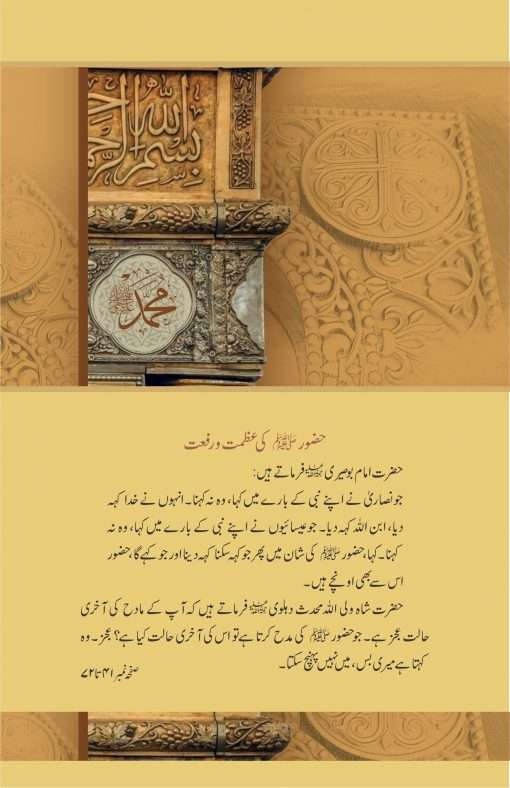 بسم اللہ الرحم
محمد ﷺ
حضور ﷺ کی عظمت و رفعت
حضرت امام بوصیری رحمۃ اللہ علیہ فرماتے ہیں:
جو نصاریٰ نے اپنے نبی کے بارے میں کہا، وہ نہ کہنا۔ انہوں نے خدا کہہ
دیا، ابن اللہ کہہ دیا۔ جو عیسائیوں نے اپنے نبی کے بارے میں کہا، وہ نہ
کہنا۔ کہا، حضور ﷺ کی شان میں پھر جو کہہ سکنا کہہ دینا اور جو کہے گا، حضور
اس سے بھی اونچے ہیں۔
حضرت شاہ ولی اللہ محدث دہلوی رحمۃ اللہ علیہ فرماتے ہیں کہ آپ کے مادح کی آخری
حالت عجز ہے۔ جو حضور ﷺ کی مدح کرتا ہے تو اس کی آخری حالت کیا ہے؟ عجز۔ وہ
کہتا ہے میری بس، میں نہیں پہنچ سکتا۔
صفحہ نمبر ۴۱ تا ۷۲